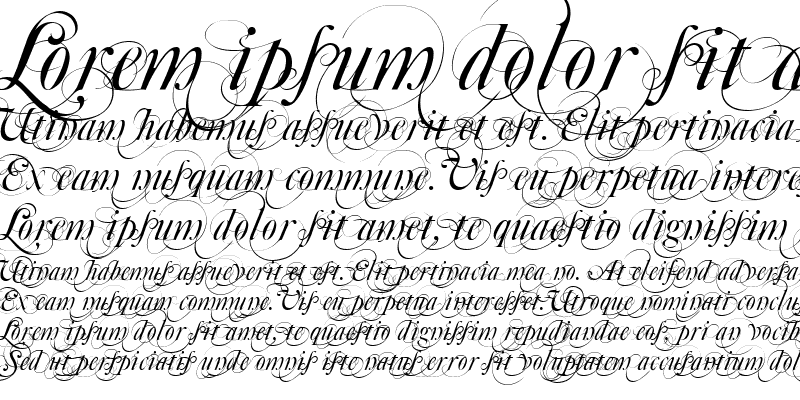 Lorem ipsum dolor sit a
Utinam habemus assueverit et est. Elit pertinacia
Ex eam nusquam commune. Vis eu perpetua interes
Lorem ipsum dolor sit amet, te quaestio dignissim
Utinam habemus assueverit et est. Elit pertinacia mea no. At eleifend adversa
Ex eam nusquam commune. Vis eu perpetua interesset. Utroque nominati conclu
Lorem ipsum dolor sit amet, te quaestio dignissim repudiandae eos, pri an vocib
Sed ut perspiciatis unde omnis iste natus error sit voluptatem accusantium dol